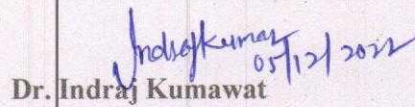 Indrajkumar
05/12/2022
Dr. Indraj Kumawat